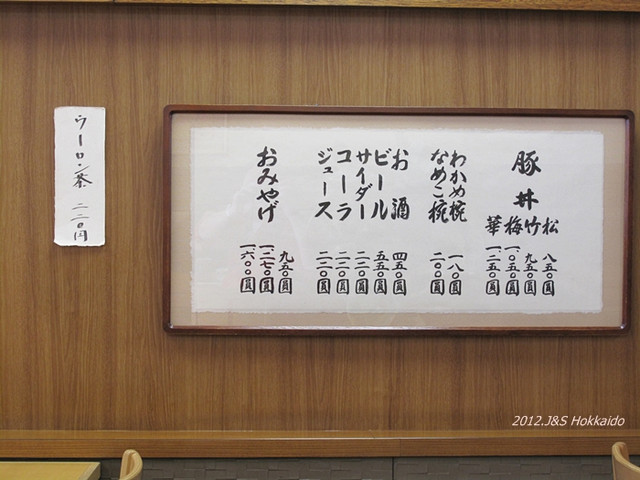 豚丼
松 八五〇圓
竹 九五〇圓
梅 一、〇五〇圓
華 一、二五〇圓
わかめ椀 一八〇圓
なめこ椀 二〇〇圓
お酒 四五〇圓
ビール 五五〇圓
サイダー 二二〇圓
コーラ 二二〇圓
ジュース 二二〇圓
おみやげ
九五〇圓
一、二七〇圓
一、六〇〇圓
ウーロン茶 二二〇円
2012.J&S Hokkaido